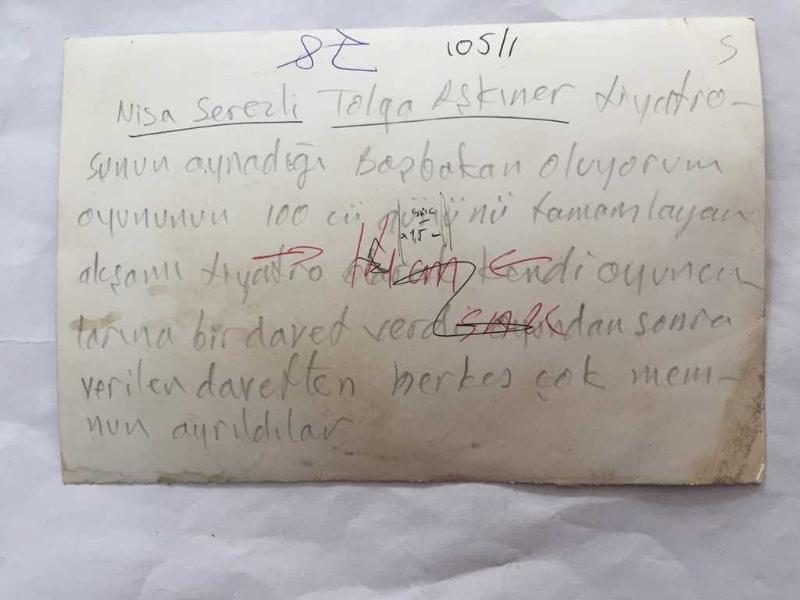 105/1
S
Nisa Serezli Tolga Aşkıner tiyatro-
sunun oynadığı Başbakan oluyorum
oyununun 100 cü gününü tamamlayan
akşamı tiyatro kendi oyuncu
larına bir davet verdi sonra
verilen davetten herkes çok mem-
nun ayrıldılar